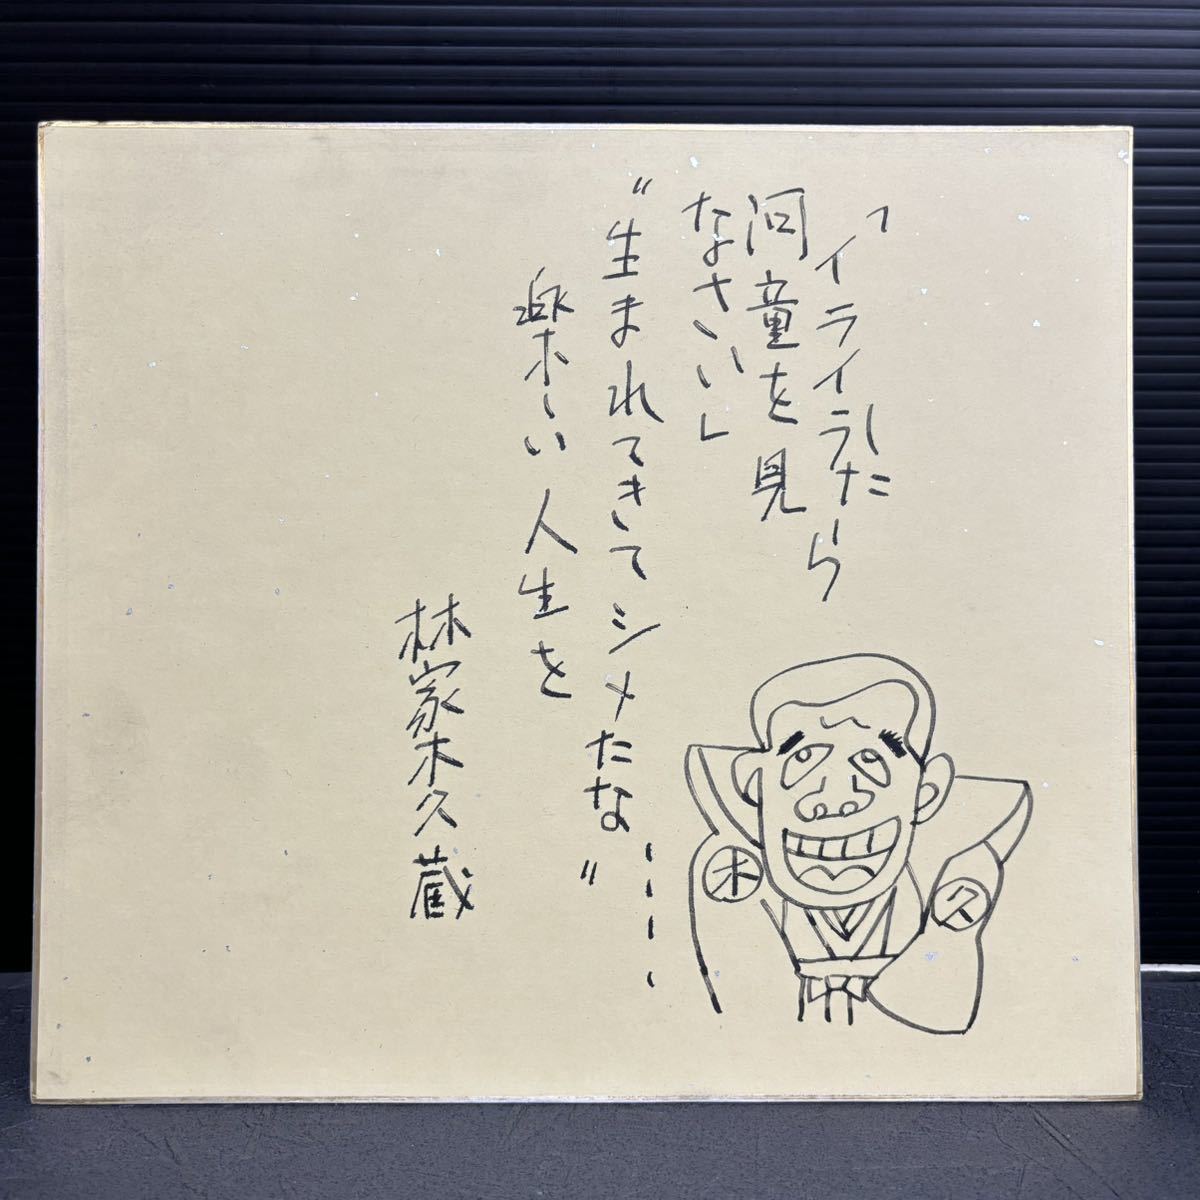 「イライラしたら
河童を見
なさい」
“生まれてきてシメたな〃
楽しい人生を、、、、
林家木久蔵
木
久